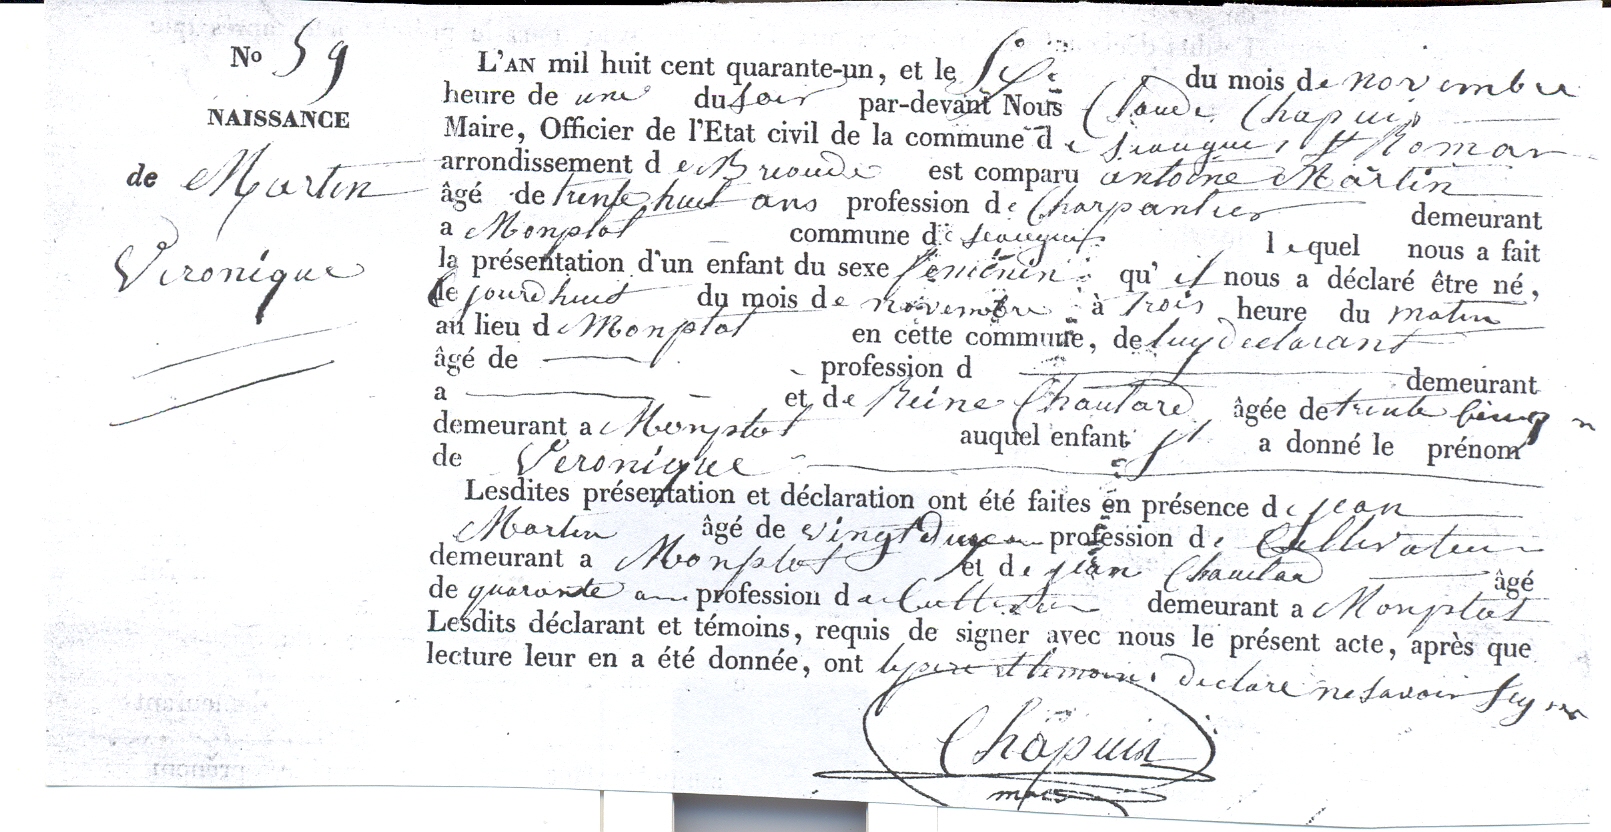 No 59
NAISSANCE
de Martin
Veronique
L'AN mil huit cent quarante-un, et le six du mois de novembre
heure de une du soir par-devant Nous Claude Chapuis
Maire, Officier de l'Etat civil de la commune de St Romain
arrondissement de Brioude est comparu antoine Martin
âgé de trente huit ans profession de Charpantier demeurant
a Monplot commune de lequel nous a fait
la présentation d'un enfant du sexe feminin qu'il nous a déclaré être né,
le jourdhuit du mois de novembre à trois heure du matin
au lieu de Monplot en cette commune, de luy declarant
âgé de profession d demeurant
a et de Reine Chautard âgée de trente cinq
demeurant a Monplot auquel enfant il a donné le prénom
de Veronique
Lesdites présentation et déclaration ont été faites en présence de jean
Martin âgé de vingt profession de Cultivateur
demeurant a Monplot et de jean Chautar âgé
de quarante profession de demeurant a Monplot
Lesdits déclarant et témoins, requis de signer avec nous le présent acte, après que
lecture leur en a été donnée, ont le pere et temoins declaré ne savoir
Chapuis